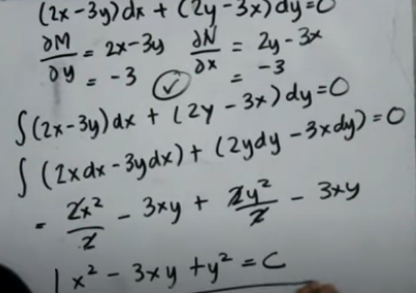 (2x-3y)dx + (2y-3x)dy=0
∂M/∂y = 2x-3y ∂N/∂x = 2y-3x
= -3 ✓ = -3
∫(2x-3y)dx + (2y-3x)dy=0
∫(2xdx-3ydx)+(2ydy-3xdy)=0
= 2x²/2 - 3xy + 2y²/2 - 3xy
x² - 3xy + y² = C